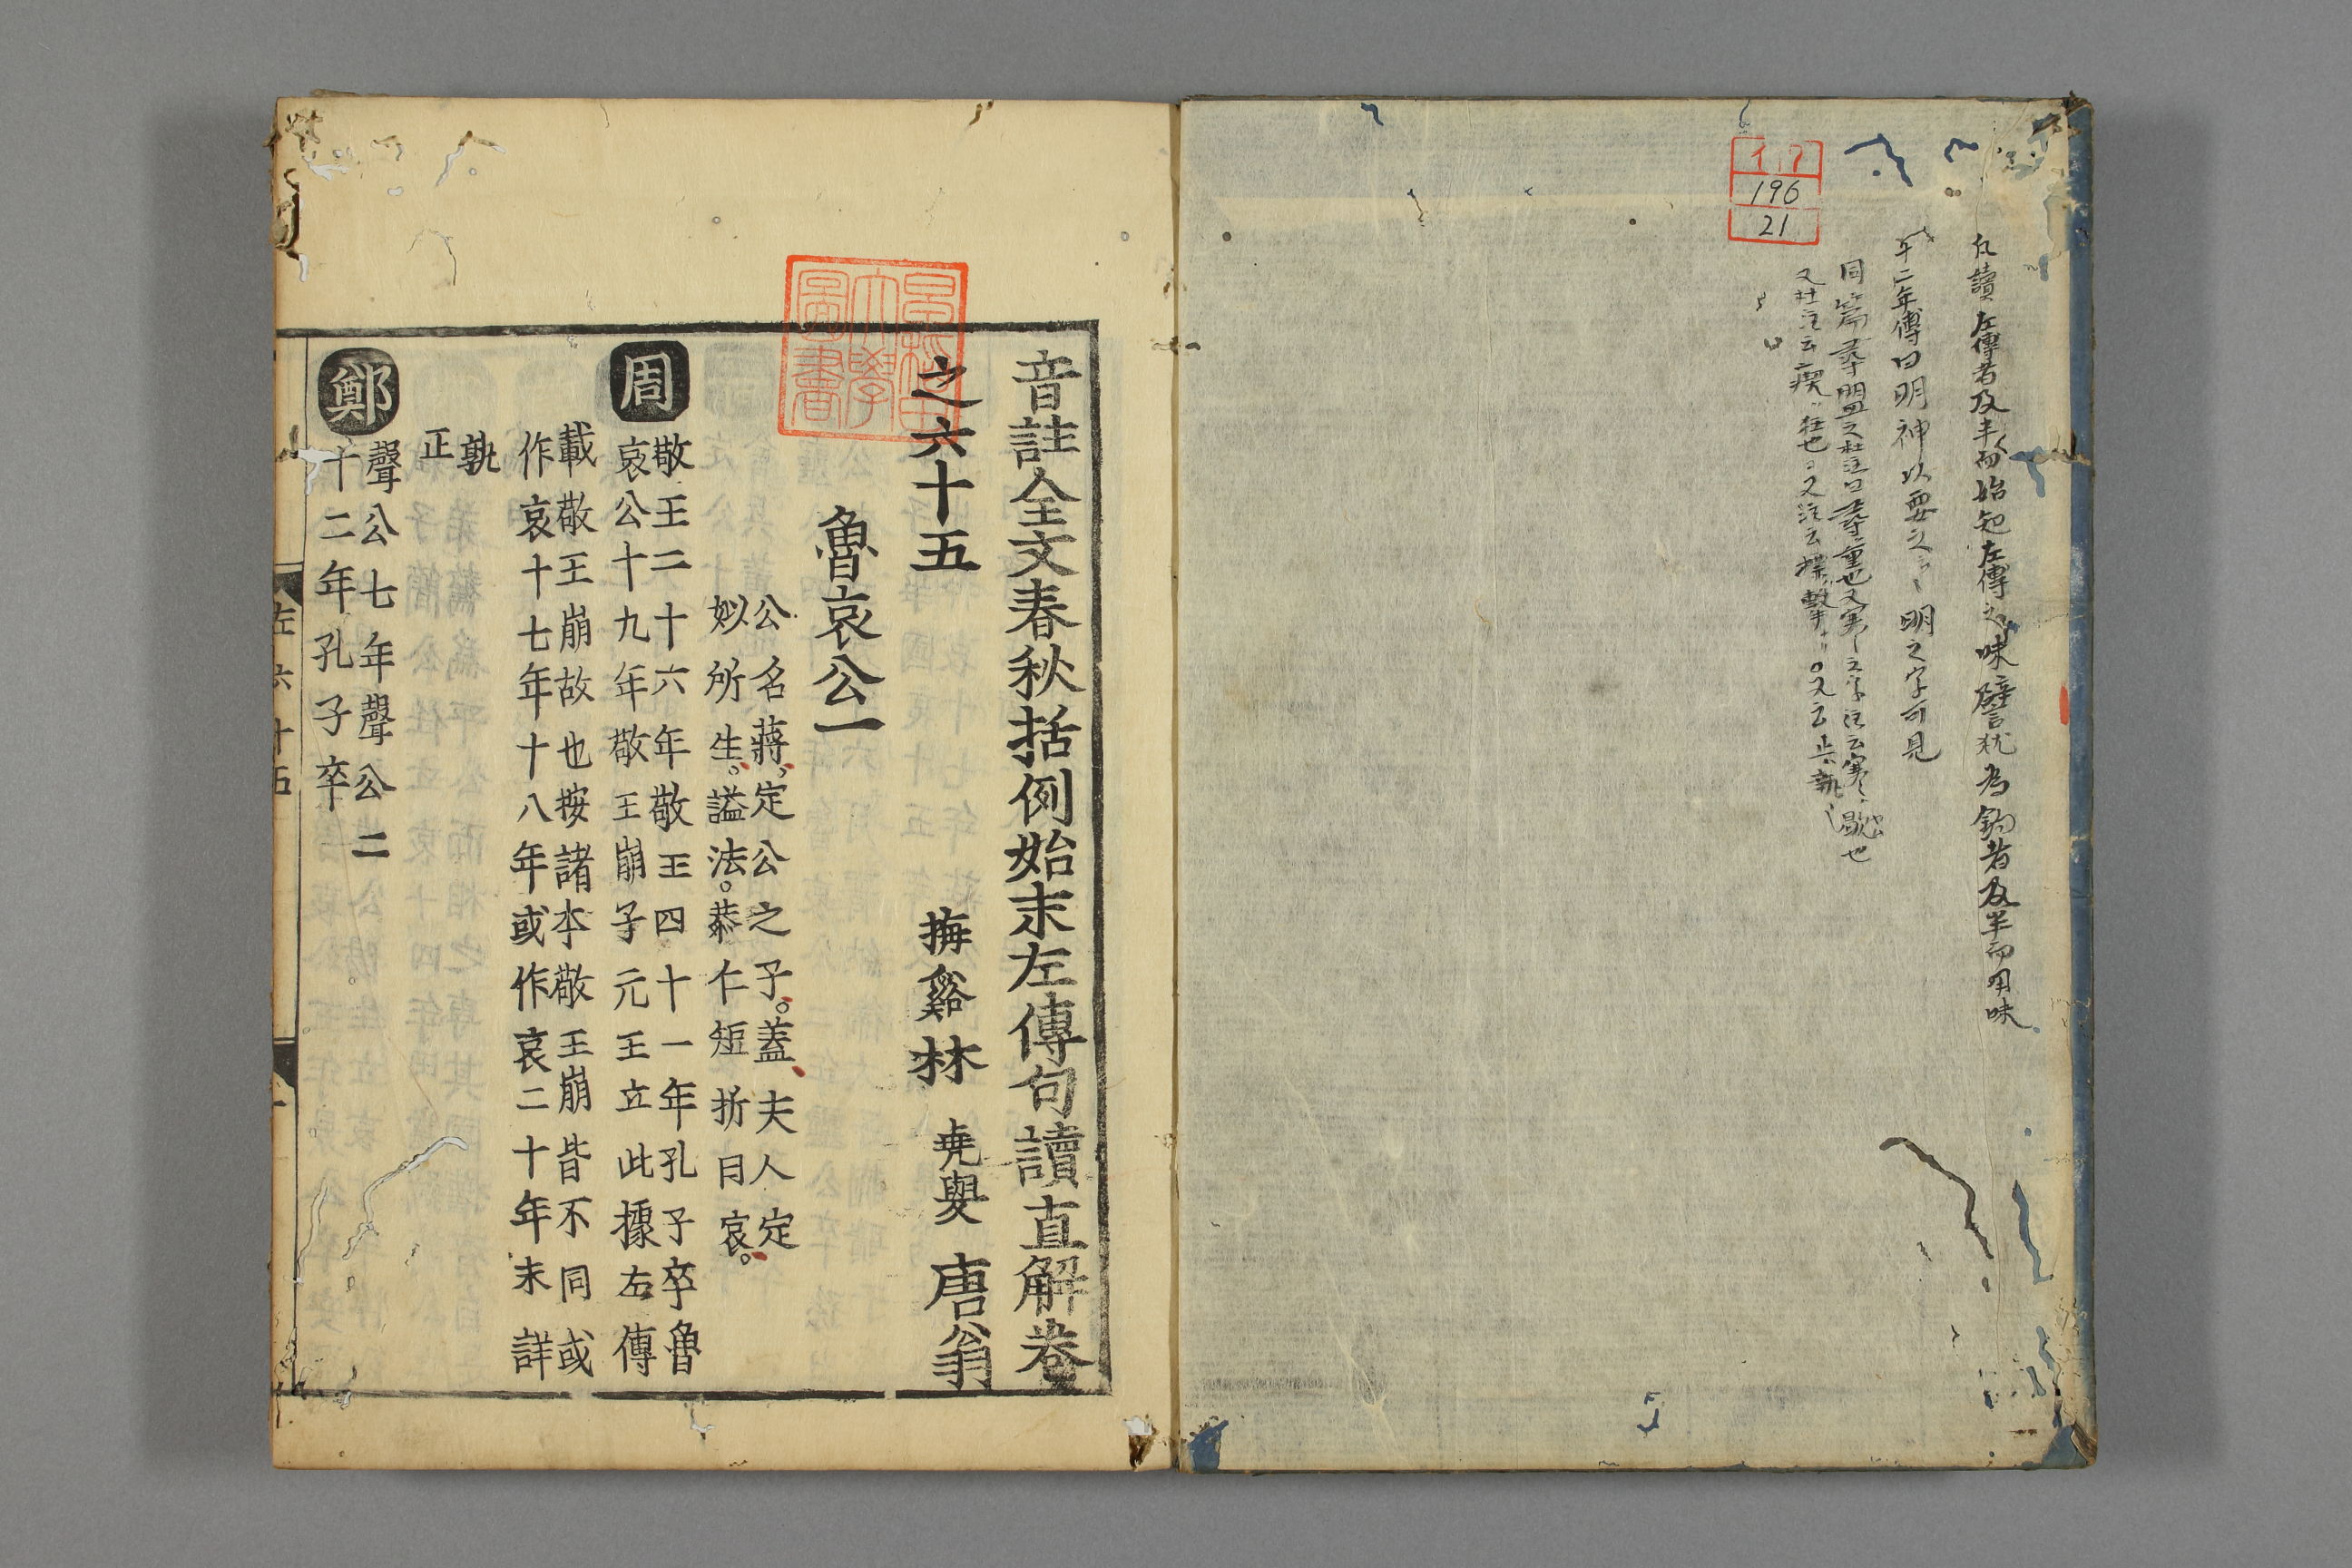 凡讀左傳者及半而始知左傳之味譬犹為鈎者及半而用味
十二年傳曰明神以要之明之字可見
同篇尋盟之杜注曰尋重也又寒之字注云寒歇也
又杜注云瘈狂也又注云擊
イ17
196
21
音註全文春秋括例始末左傳句讀直解卷
之六十五 梅谿林 堯叟 唐翁
魯哀公一
公名蔣定公之子。蓋夫人定
姒所生。謚法。恭仁短折曰哀。
周
敬王二十六年敬王四十一年孔子卒魯
哀公十九年敬王崩子元王立此據左傳
載敬王崩故也按諸本敬王崩皆不同或
作哀十七年十八年或作哀二十年未詳
孰
正
鄭
聲公七年聲公二
十二年孔子卒
左六十五